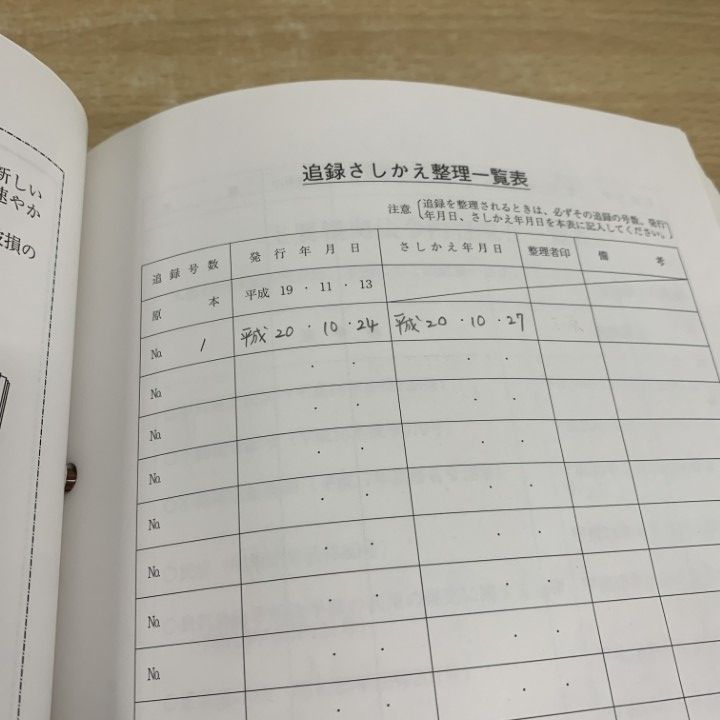 新しい
速やか
破損の
追録さしかえ整理一覧表
注意 追録を整理されるときは、必ずその追録の号数、発行
年月日、さしかえ年月日を本表に記入してください。
追録号数 発行年月日 さしかえ年月日 整理者印 備考
原本 平成 19 ・ 11 ・ 13
№ 1 平成 20 ・ 10 ・ 24 平成 20 ・ 10 ・ 27
№ ・ ・ ・ ・
№ ・ ・ ・ ・
№ ・ ・ ・ ・
№ ・ ・ ・ ・
№ ・ ・ ・
№ ・ ・ ・ ・
№ ・ ・ ・ ・
№ ・ ・ ・ ・